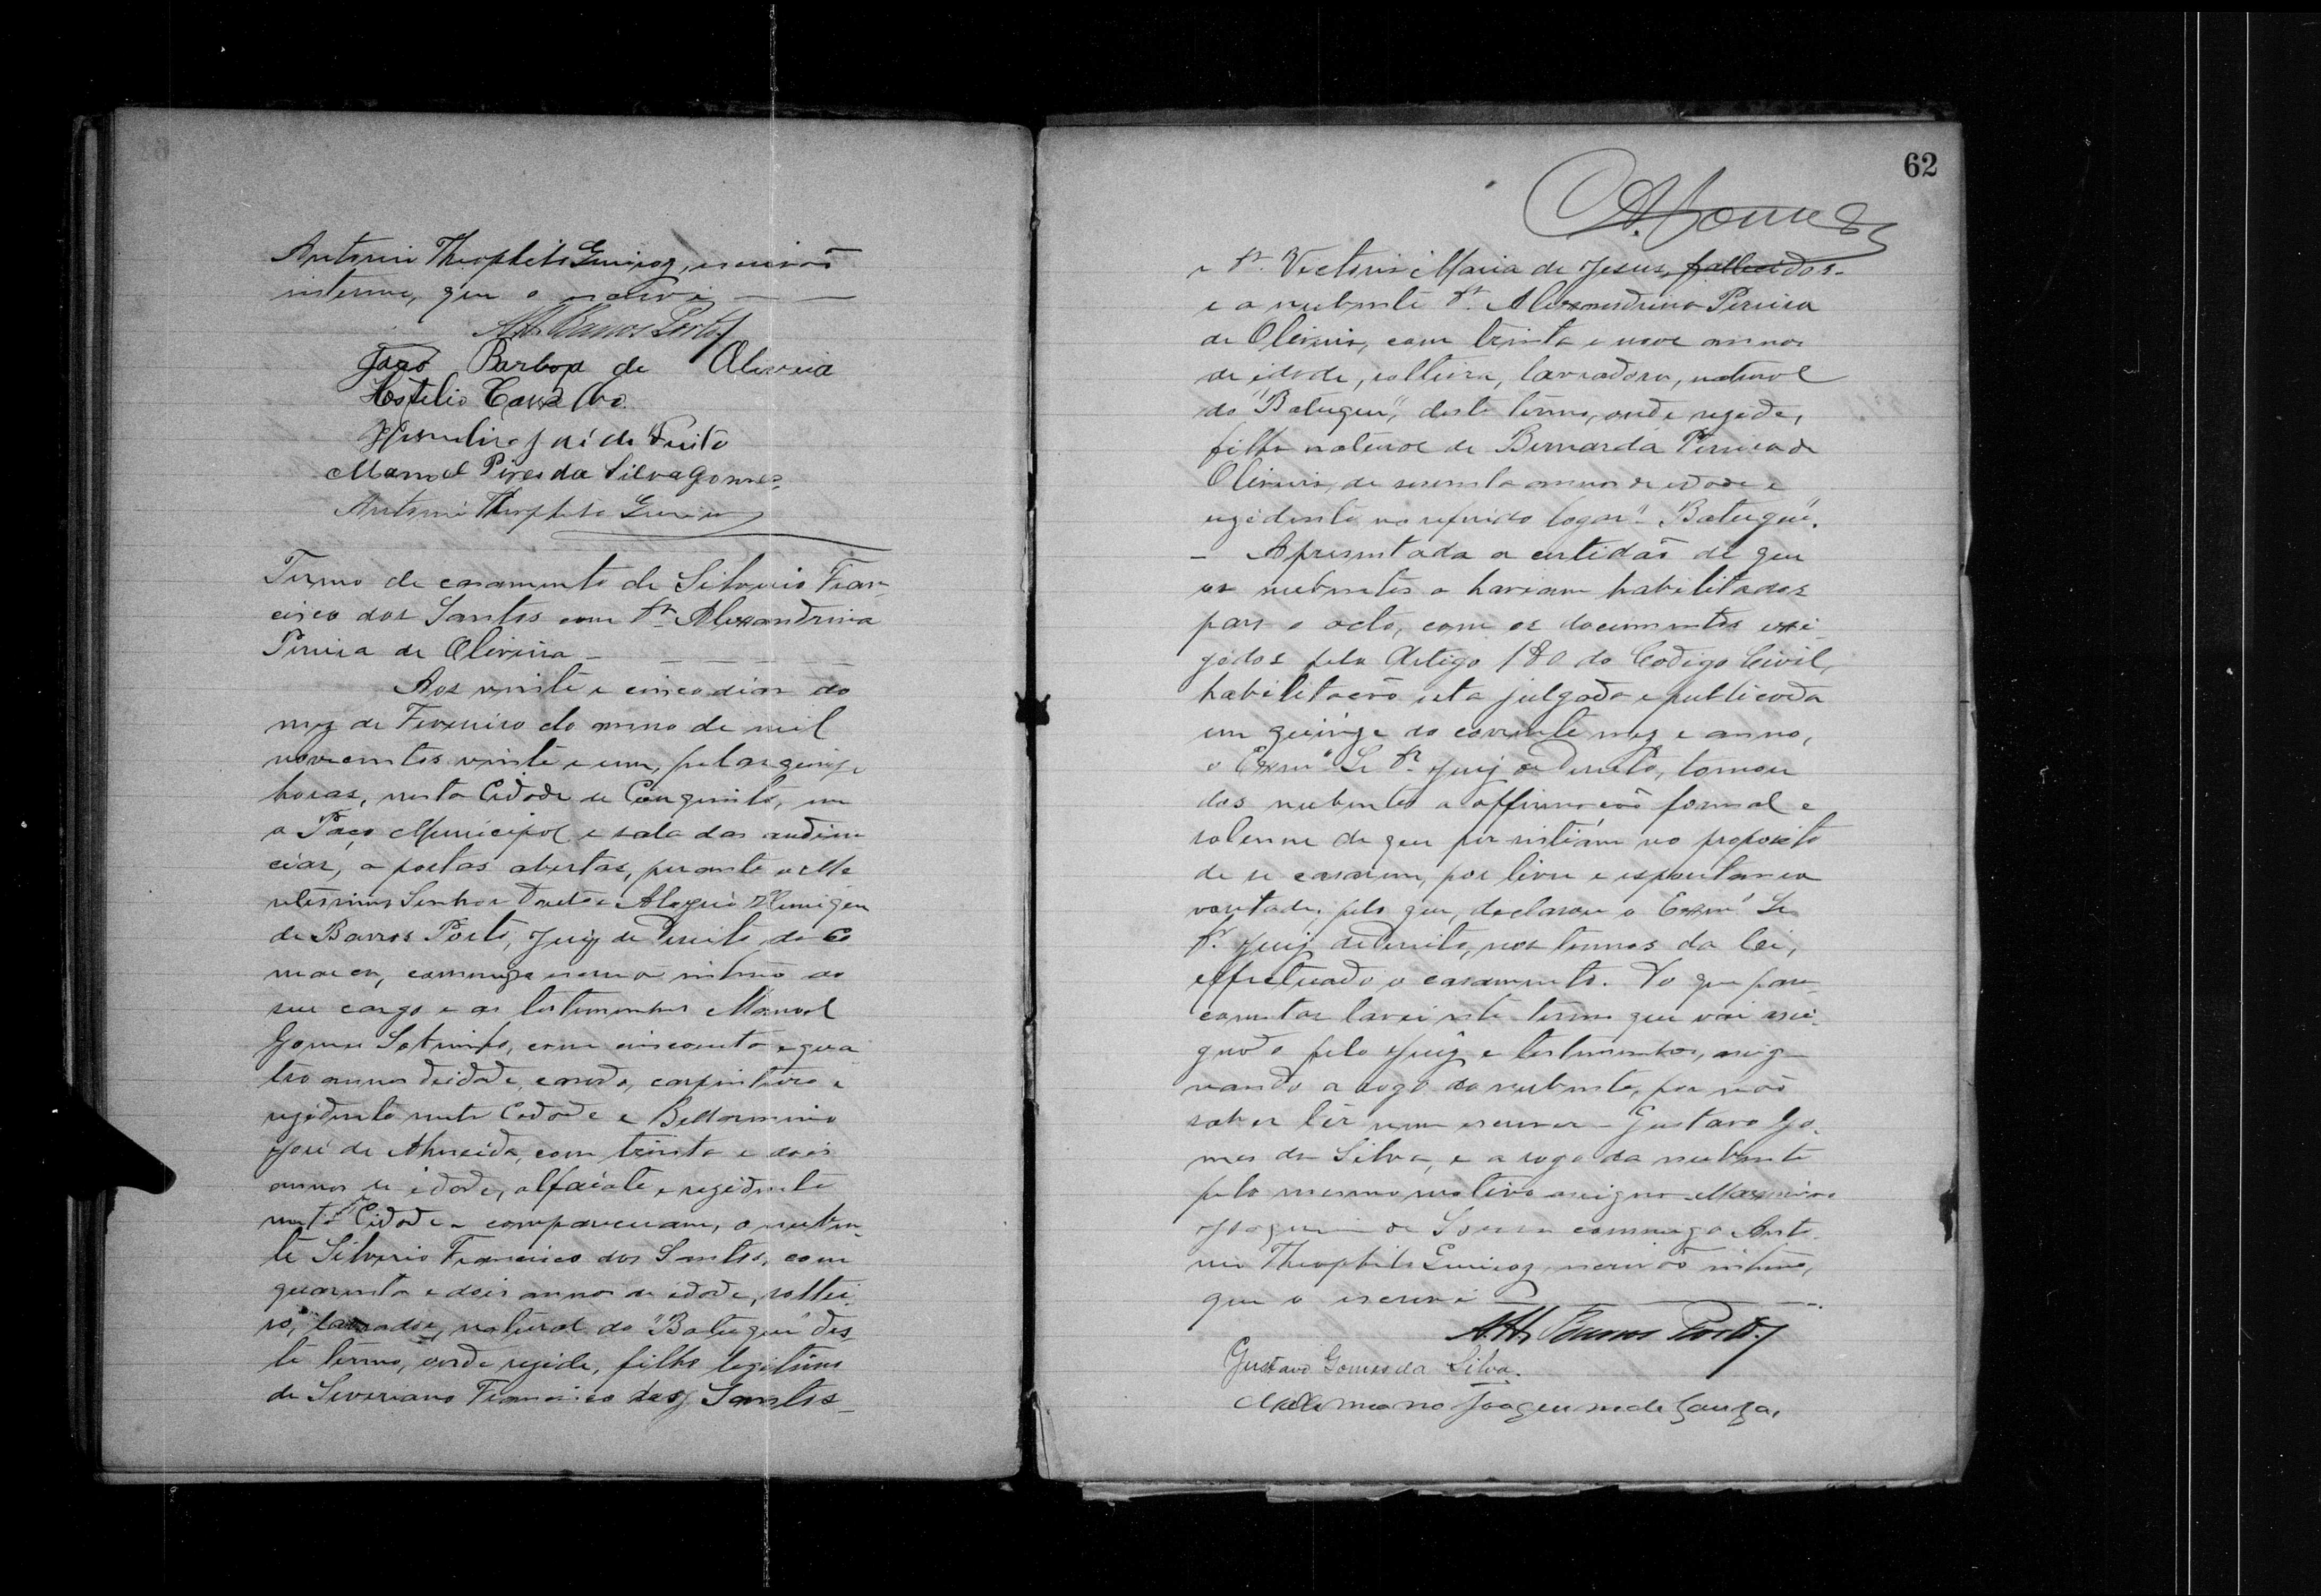 Antonio Theophilo Queiroz, escrivão
interino, que o escrevi — —
A.H. Barros Porto
João Barbosa de Oliveira
Hostilio Carvalho.
José de Brito
Manoel Pires da Silva Gomes
Antonio Theophilo Queiroz
Termo de casamento de Silverio Fran-
cisco dos Santos com Dª Alexandrina
Pereira de Oliveira —
Aos vinte e cinco dias do
mez de Fevereiro do anno de mil
novecentos vinte e um, pelas quinze
horas, nesta Cidade de Conquista, em
o Paço Municipal e sala das audien-
cias, a portas abertas, perante o Me
retissimo Senhor Doutor Aloysio Henrique
de Barros Porto, Juiz de Direito da Co
marca, commigo escrivão interino do
seu cargo e as testemunhas Manoel
Gomes com cincoenta e qua
tro annos de idade, casado, carpinteiro e
rezidente nesta Cidade e Bellarmino
José de Almeida, com trinta e dois
annos de idade, alfaiate e rezidente
nesta Cidade - compareceram, o nuben-
te Silverio Francisco dos Santos, com
quarenta e dois annos de idade, soltei-
ro, lavrador, natural do "Batuque" des-
te termo, onde rezide, filho legitimo
de Severiano Francisco dos Santos
62
A. Gomes
e Dª. Victoria Maria de Jesus, fallecidos.
e a nubente Dª. Alexandrina Pereira
de Oliveira, com trinta e nove annos
de idade, solteira, lavradora, natural
do "Batuque", deste termo, onde rezide,
filha natural de Bernarda Pereira de
Oliveira, de sessenta annos de edade e
rezidente no referido logar "Batuque".
— Apresentada a certidão de que
os nubentes a haviam habilitados
para o acto, com os documentos exi-
gidos pelo Artigo 180 do Codigo Civil,
habilitação esta julgada e publicada
em quinze do corrente mez e anno,
o Exmº Sr Dr. Juiz de Direito, tomou
dos nubentes a affirmação formal e
solemne de que persistiam no proposito
de se casarem, por livre e espontanea
vontade, pelo que, declarou o Exmº Sr
Dr. Juiz de Direito, nos termos da lei,
effectuado o casamento. Do que para
constar lavrei este termo que vai assi-
gnado pelo Juiz e testemunhas, assig-
nando a rogo do nubente, por não
saber lêr nem escrever - Gustavo Go-
mes da Silva, e a rogo da nubente
pelo mesmo motivo assigna Maximiano
Joaquim de Souza commigo Anto-
nio Theophilo Queiroz, escrivão interino,
que o escrevi
A.H. Barros Porto
Gustavo Gomes da Silva.
Maximiano Joaquim de Souza,